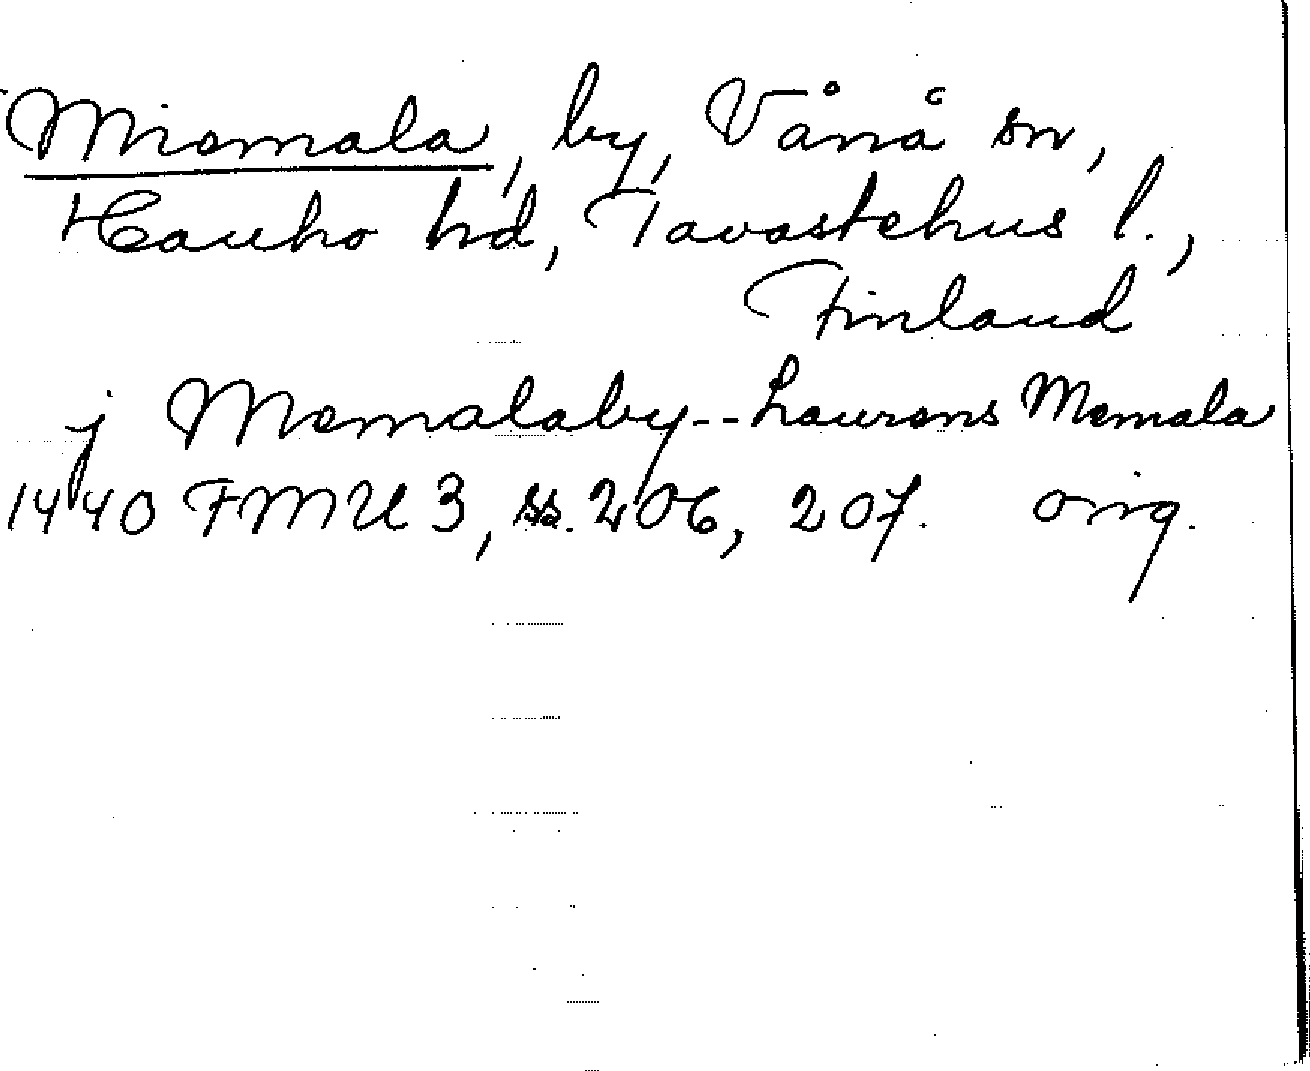 Miemala, by, Vånå sn,
Hauho hd, Tavastehus l.,
Finland
j Memalaby -- Laurens Memala
1440 FMU 3, ss. 206, 207. orig.